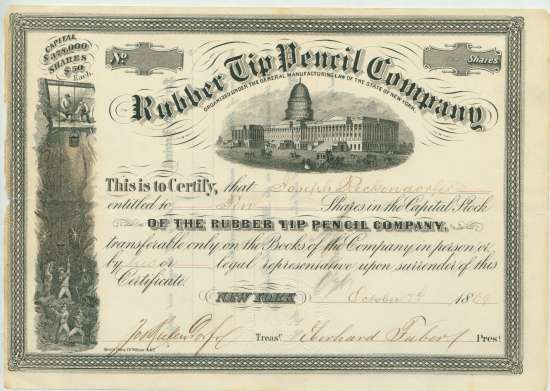 CAPITAL
$378,000
SHARES
$50
Each.
No
Shares
Rubber Tip Pencil Company
ORGANIZED UNDER THE GENERAL MANUFACTURING LAW OF THE STATE OF NEW YORK.
This is to Certify, that Joseph Reckendorfer
entitled to Shares in the Capital Stock
OF THE RUBBER TIP PENCIL COMPANY,
transferable only on the Books of the Company in person or
by his or legal representative upon surrender of this
Certificate.
NEW YORK October 18
Treasr. Eberhard Faber Prest